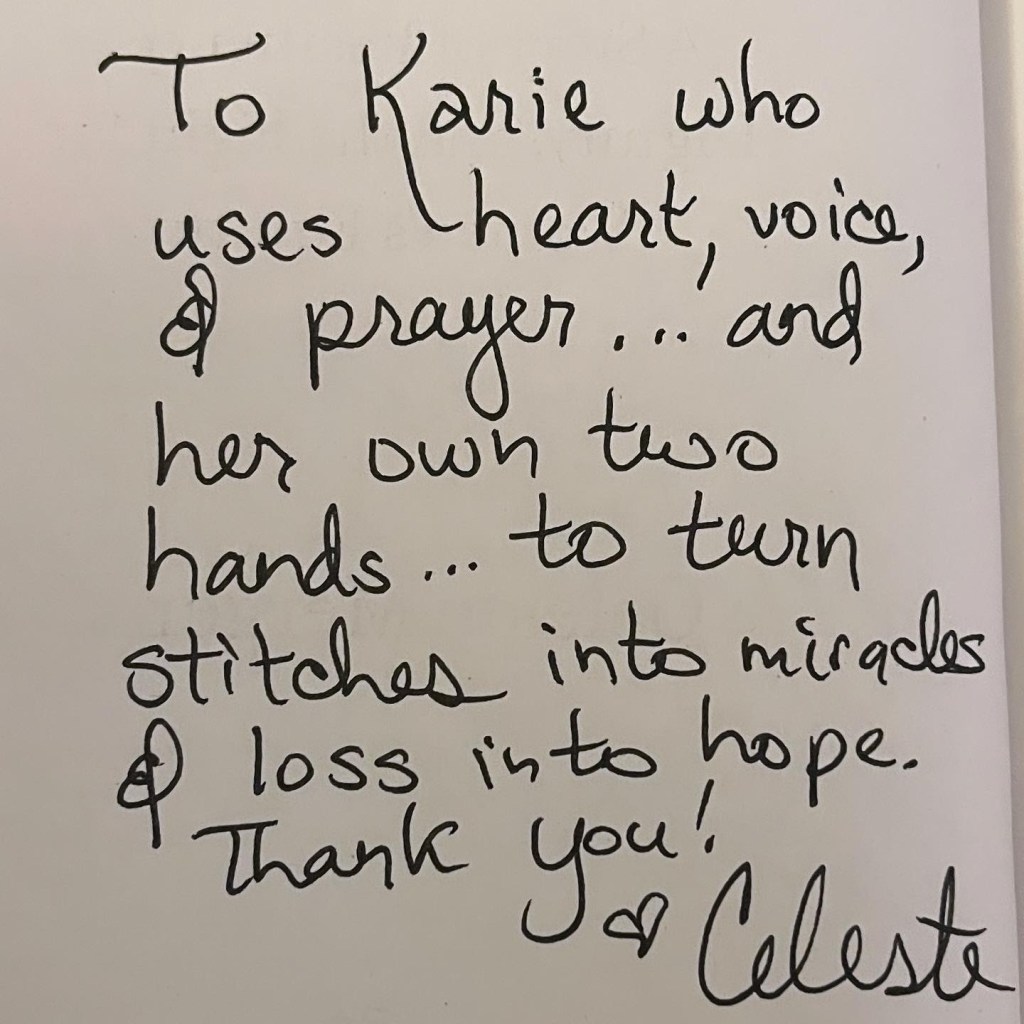 To Karie who
uses heart, voice,
& prayer... and
her own two
hands... to turn
stitches into miracles
& loss into hope.
Thank you!
♡ Celeste